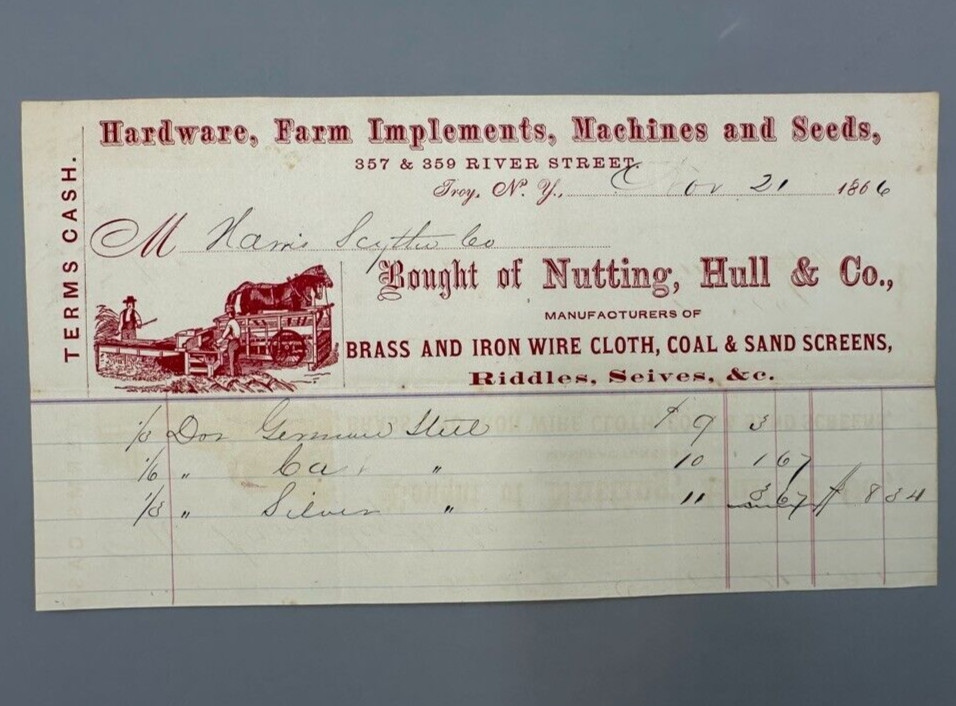 Hardware, Farm Implements, Machines and Seeds,
357 & 359 RIVER STREET
Troy, N. Y., Nov 21 1866
TERMS CASH.
M Harris Scythe Co
Bought of Nutting, Hull & Co.,
MANUFACTURERS OF
BRASS AND IRON WIRE CLOTH, COAL & SAND SCREENS,
Riddles, Seives, &c.
1/3 Doz German Steel $9 3
1/6 " Ca " 10 1 67
1/3 " Silver " 11 3 67 $ 8 34